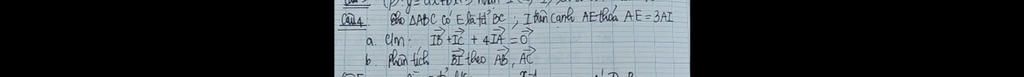 Câu 4 Cho ΔABC có E là tđ BC, I trên cạnh AE thoả AE = 3AI
a. C/m: \vec{IB} + \vec{IC} + 4\vec{IA} = \vec{0}
b. Phân tích \vec{BI} theo \vec{AB}, \vec{AC}